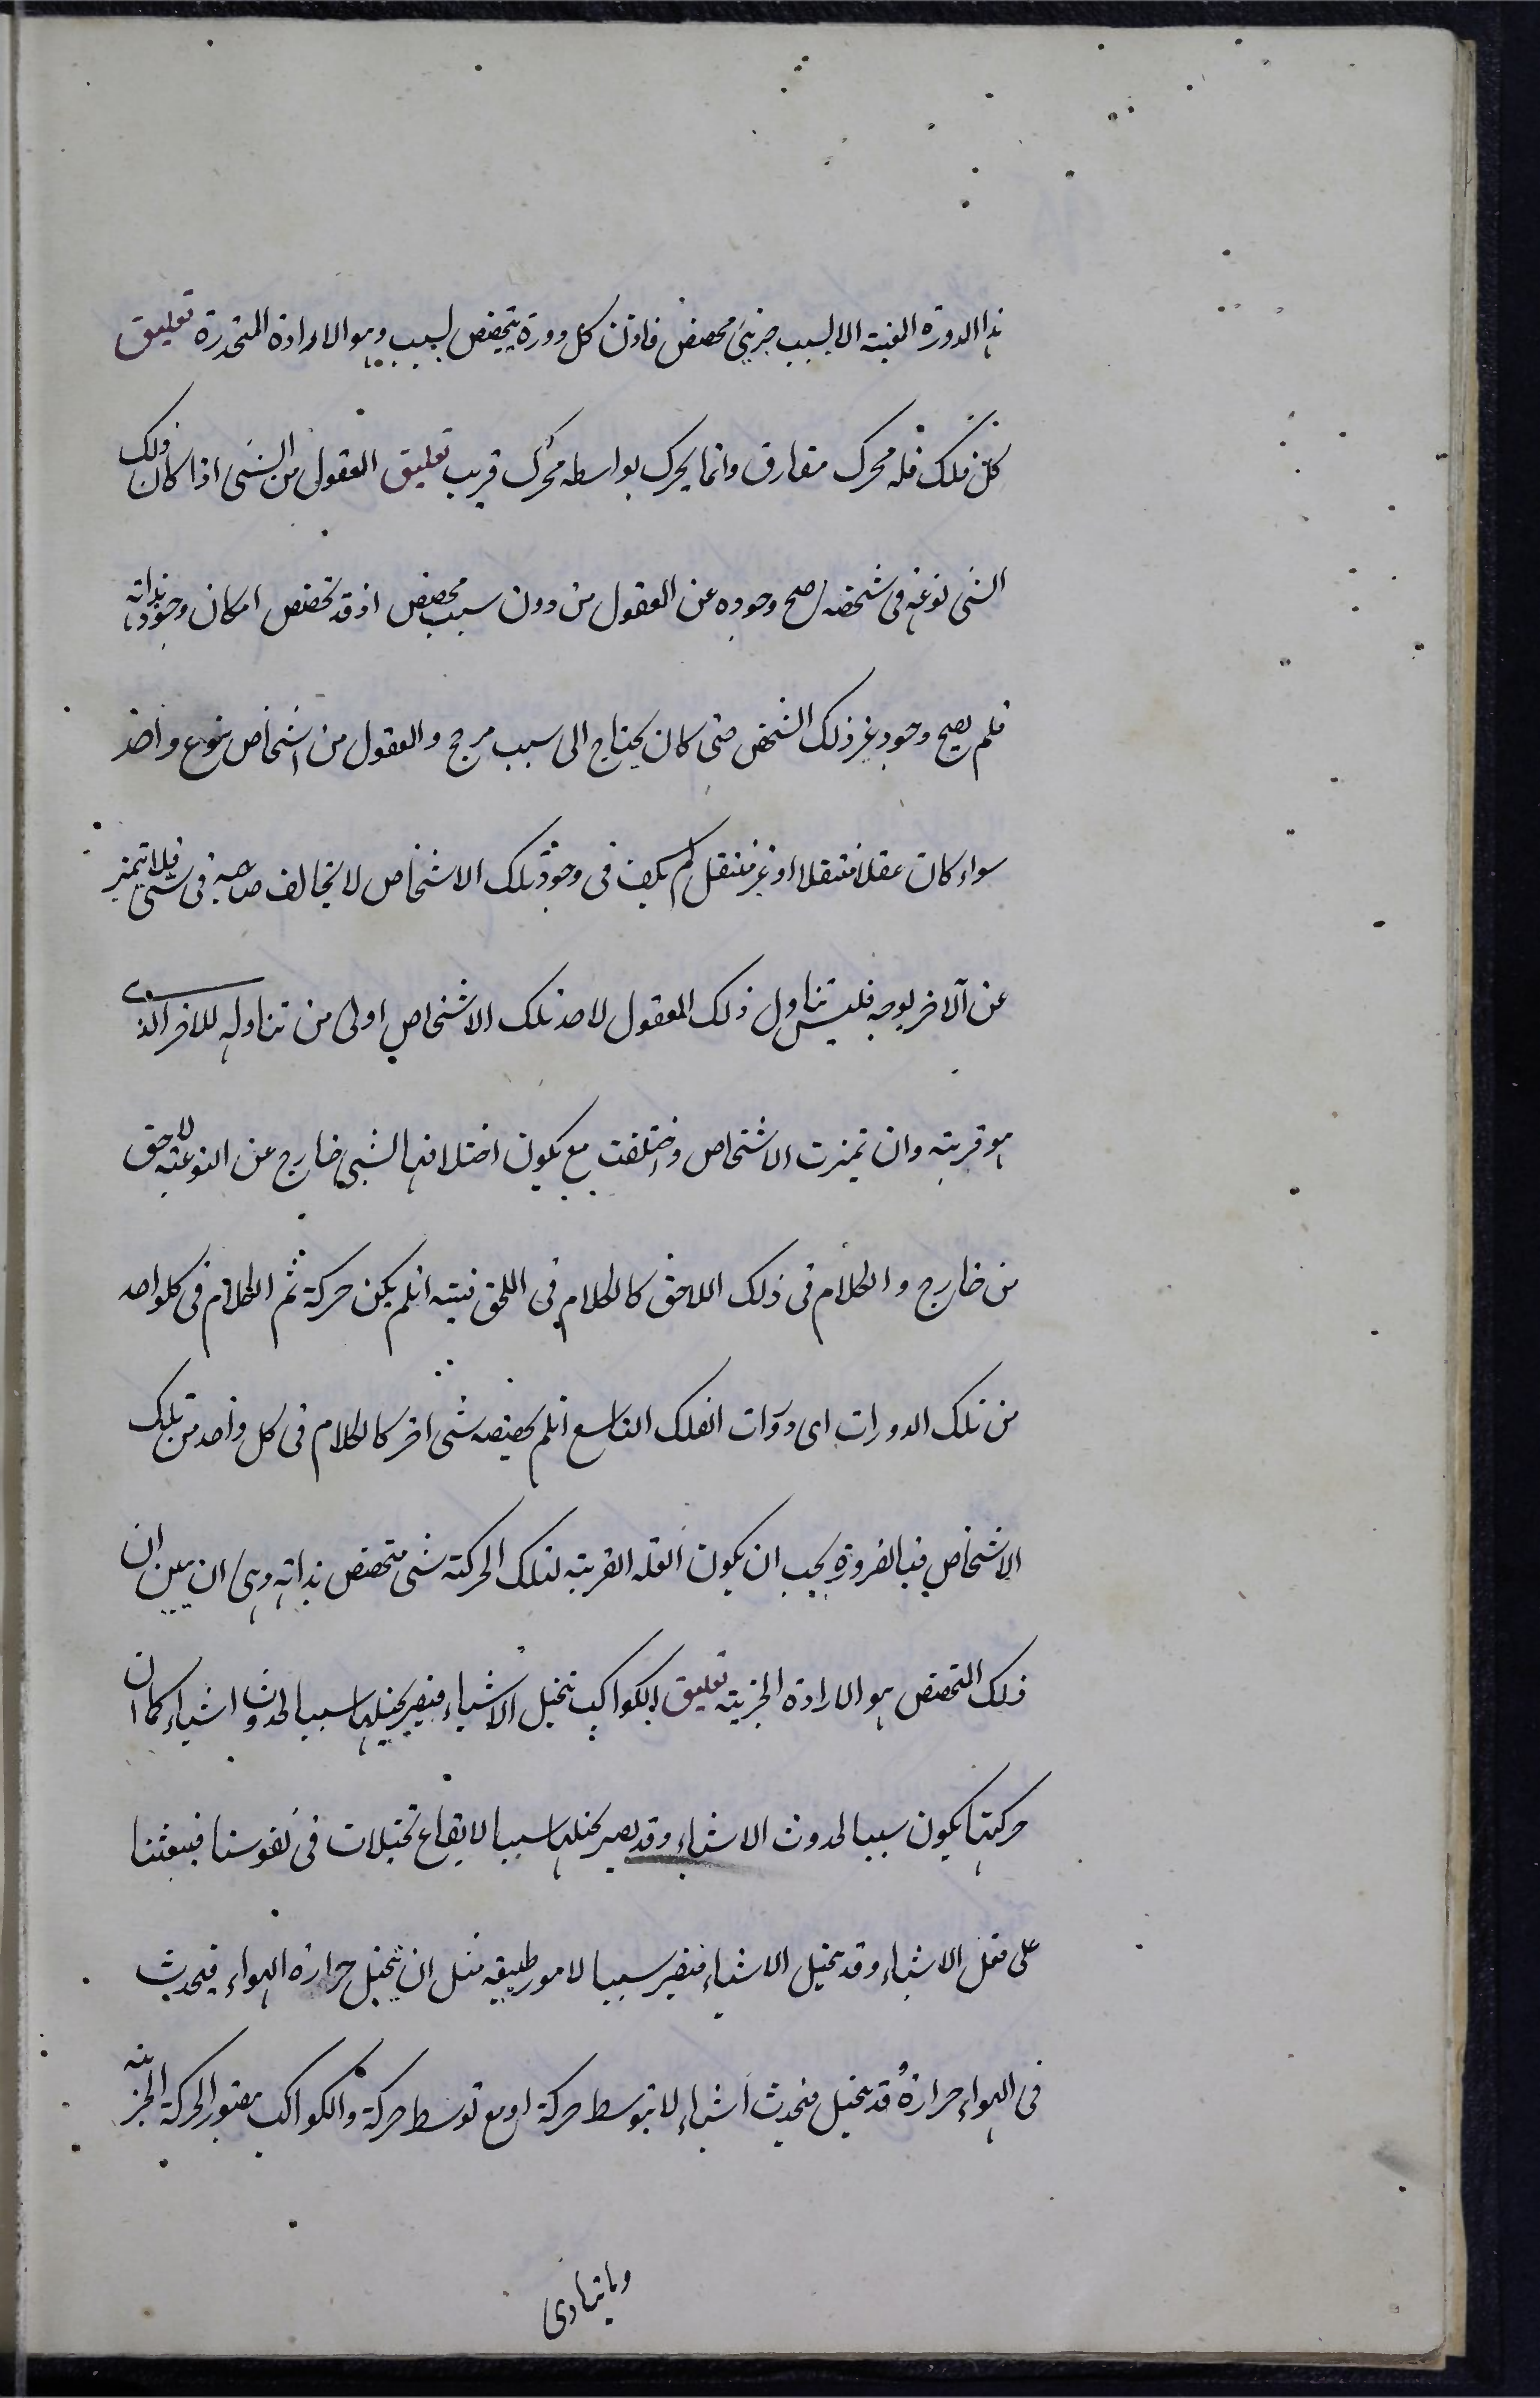 هذا الدورة المعينة الا لسبب جزئى مخصص فاذن كل دورة يتخصص لسبب وهو الارادة المتجددة تعليق
كل فلك فله محرك مفارق وانما يحرك بواسطه محرك قريب تعليق المعقول من الشى اذا كان ذلك
الشى نوعه فى شخصه صح وجوده عن المعقول من دون سبب مخصص اذ قد تخصص امكان وجوده بذاته
فلم يصح وجود غير ذلك الشخص حتى كان يحتاج الى سبب مرجح والمعقول من اشخاص نوع واحد
سواء كان عقلا منتقلا او غير منتقل لم يكف فى وجود تلك الاشخاص لا يخالف صاحبه فى شى فلا يتميز
عن الآخر بوجه فليس تناول ذلك المعقول لاحد تلك الاشخاص اولى من تناوله للاخر الذى
هو قرينه وان تميزت الاشخاص واختلفت مع يكون اختلافها لشى خارج عن النوعية لاحق
من خارج والكلام فى ذلك اللاحق كالكلام فى اللحق فيته ان لم يكن حركة ثم الكلام فى كلواحد
من تلك الدورات اى دورات الفلك التاسع ان لم يخصصه شى اخر كالكلام فى كل واحد من تلك
الاشخاص فبالضرورة يجب ان يكون العلة القريبة لتلك الحركة شى متخصص بذاته وهى ان يبين ان
ذلك المتخصص هو الارادة الجزيية تعليق الكواكب تتخيل الاشياء فيصير تخيلها سببا لحدوث اشياء كما ان
حركتها يكون سببا لحدوث الاشياء وقد يصير تخيلها سببا لايقاع تخيلات فى نفوسنا فيبعثنا
على فعل الاشياء وقد يتخيل الاشياء فيصير سببا لامور طبيعيه مثل ان يتخيل حرارة الهواء فيحدث
فى الهواء حرارة وقد يتخيل فيحدث اشياء لا بتوسط حركة او مع توسط حركة والكواكب يتصور الحركة الجزيية
وما يتادى